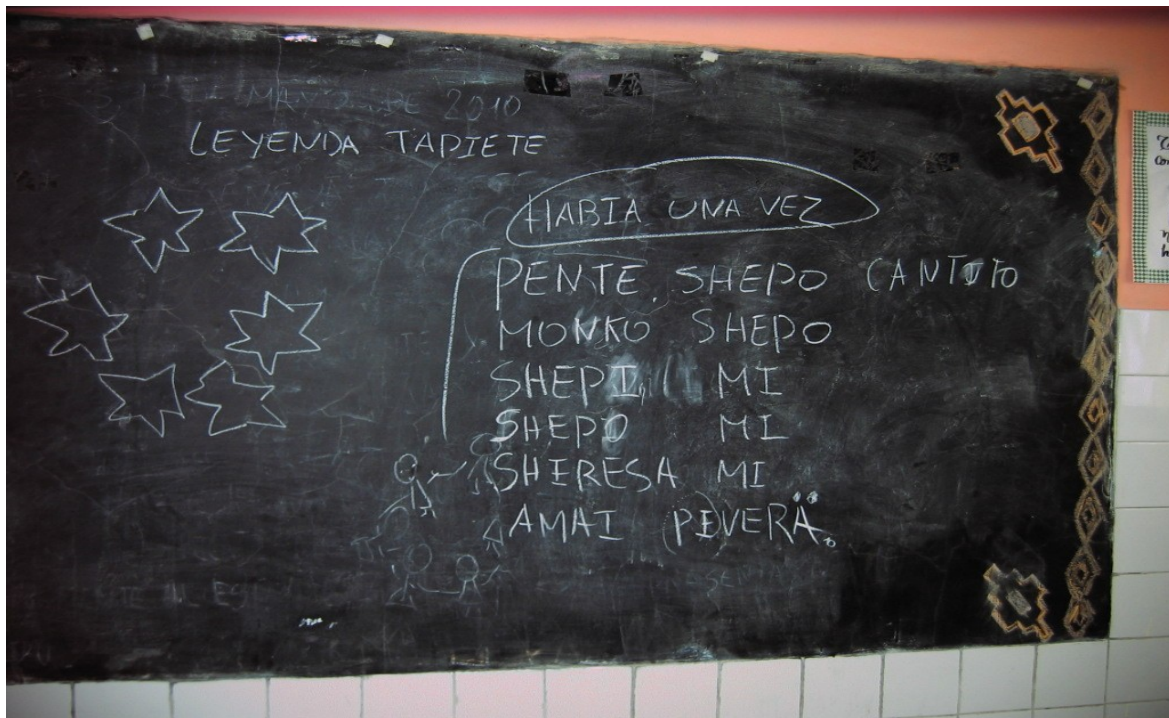 MAYO DE 2010
LEYENDA TAPIETE
HABIA UNA VEZ
PENTE, SHEPO CANTITO
MONKO SHEPO
SHEPI, MI
SHEPO MI
SHIRESA MI
AMAI (PI)VERÄ.